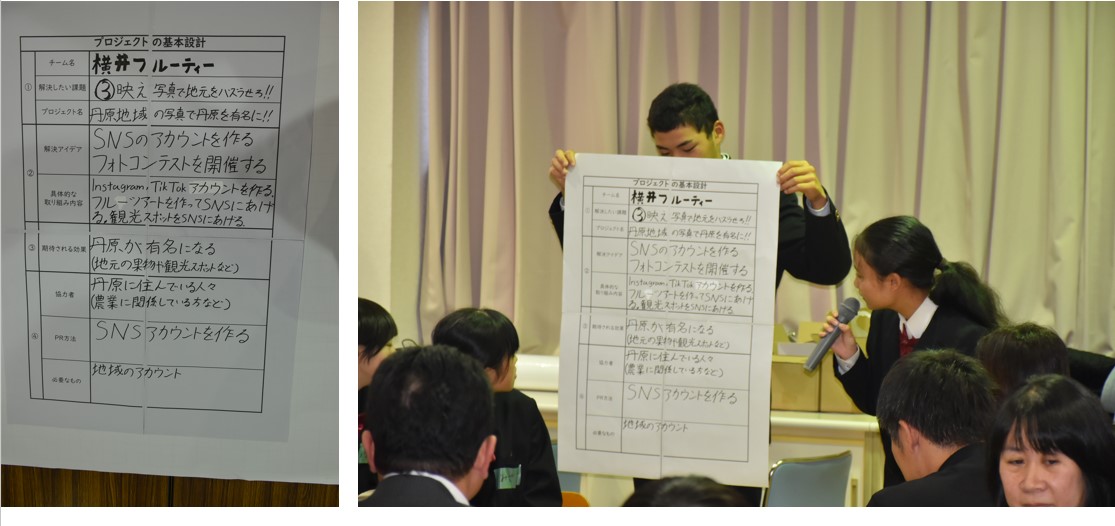 プロジェクトの基本設計
チーム名
横井フルーティー
①
解決したい課題
③映え 写真で地元をバズらせろ!!
プロジェクト名
丹原地域の写真で丹原を有名に!!
②
解決アイデア
SNSのアカウントを作る
フォトコンテストを開催する
具体的な
取り組み内容
Instagram,TikTokアカウントを作る,
フルーツアートを作ってSNSにあけ
る,観光スポットをSNSにあげる
③
期待される効果
丹原が有名になる
(地元の果物や観光スポットなど)
④
協力者
丹原に住んでいる人々
(農業に関係している方など)
PR方法
SNSアカウントを作る
必要なもの
地域のアカウント
プロジェクトの基本設計
チーム名
横井フルーティー
①
解決したい課題
③映え 写真で地元をバズらせろ!!
プロジェクト名
丹原地域の写真で丹原を有名に!!
②
解決アイデア
SNSのアカウントを作る
フォトコンテストを開催する
具体的な
取り組み内容
Instagram,TikTokアカウントを作る,
フルーツアートを作ってSNSにあけ
る,観光スポットをSNSにあげる
③
期待される効果
丹原が有名になる
(地元の果物や観光スポットなど)
④
協力者
丹原に住んでいる人々
(農業に関係している方など)
PR方法
SNSアカウントを作る
必要なもの
地域のアカウント